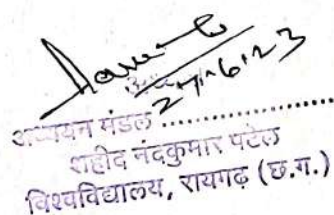 27.6.23
अध्ययन मंडल ....................
शहीद नंदकुमार पटेल
विश्वविद्यालय, रायगढ़ (छ.ग.)